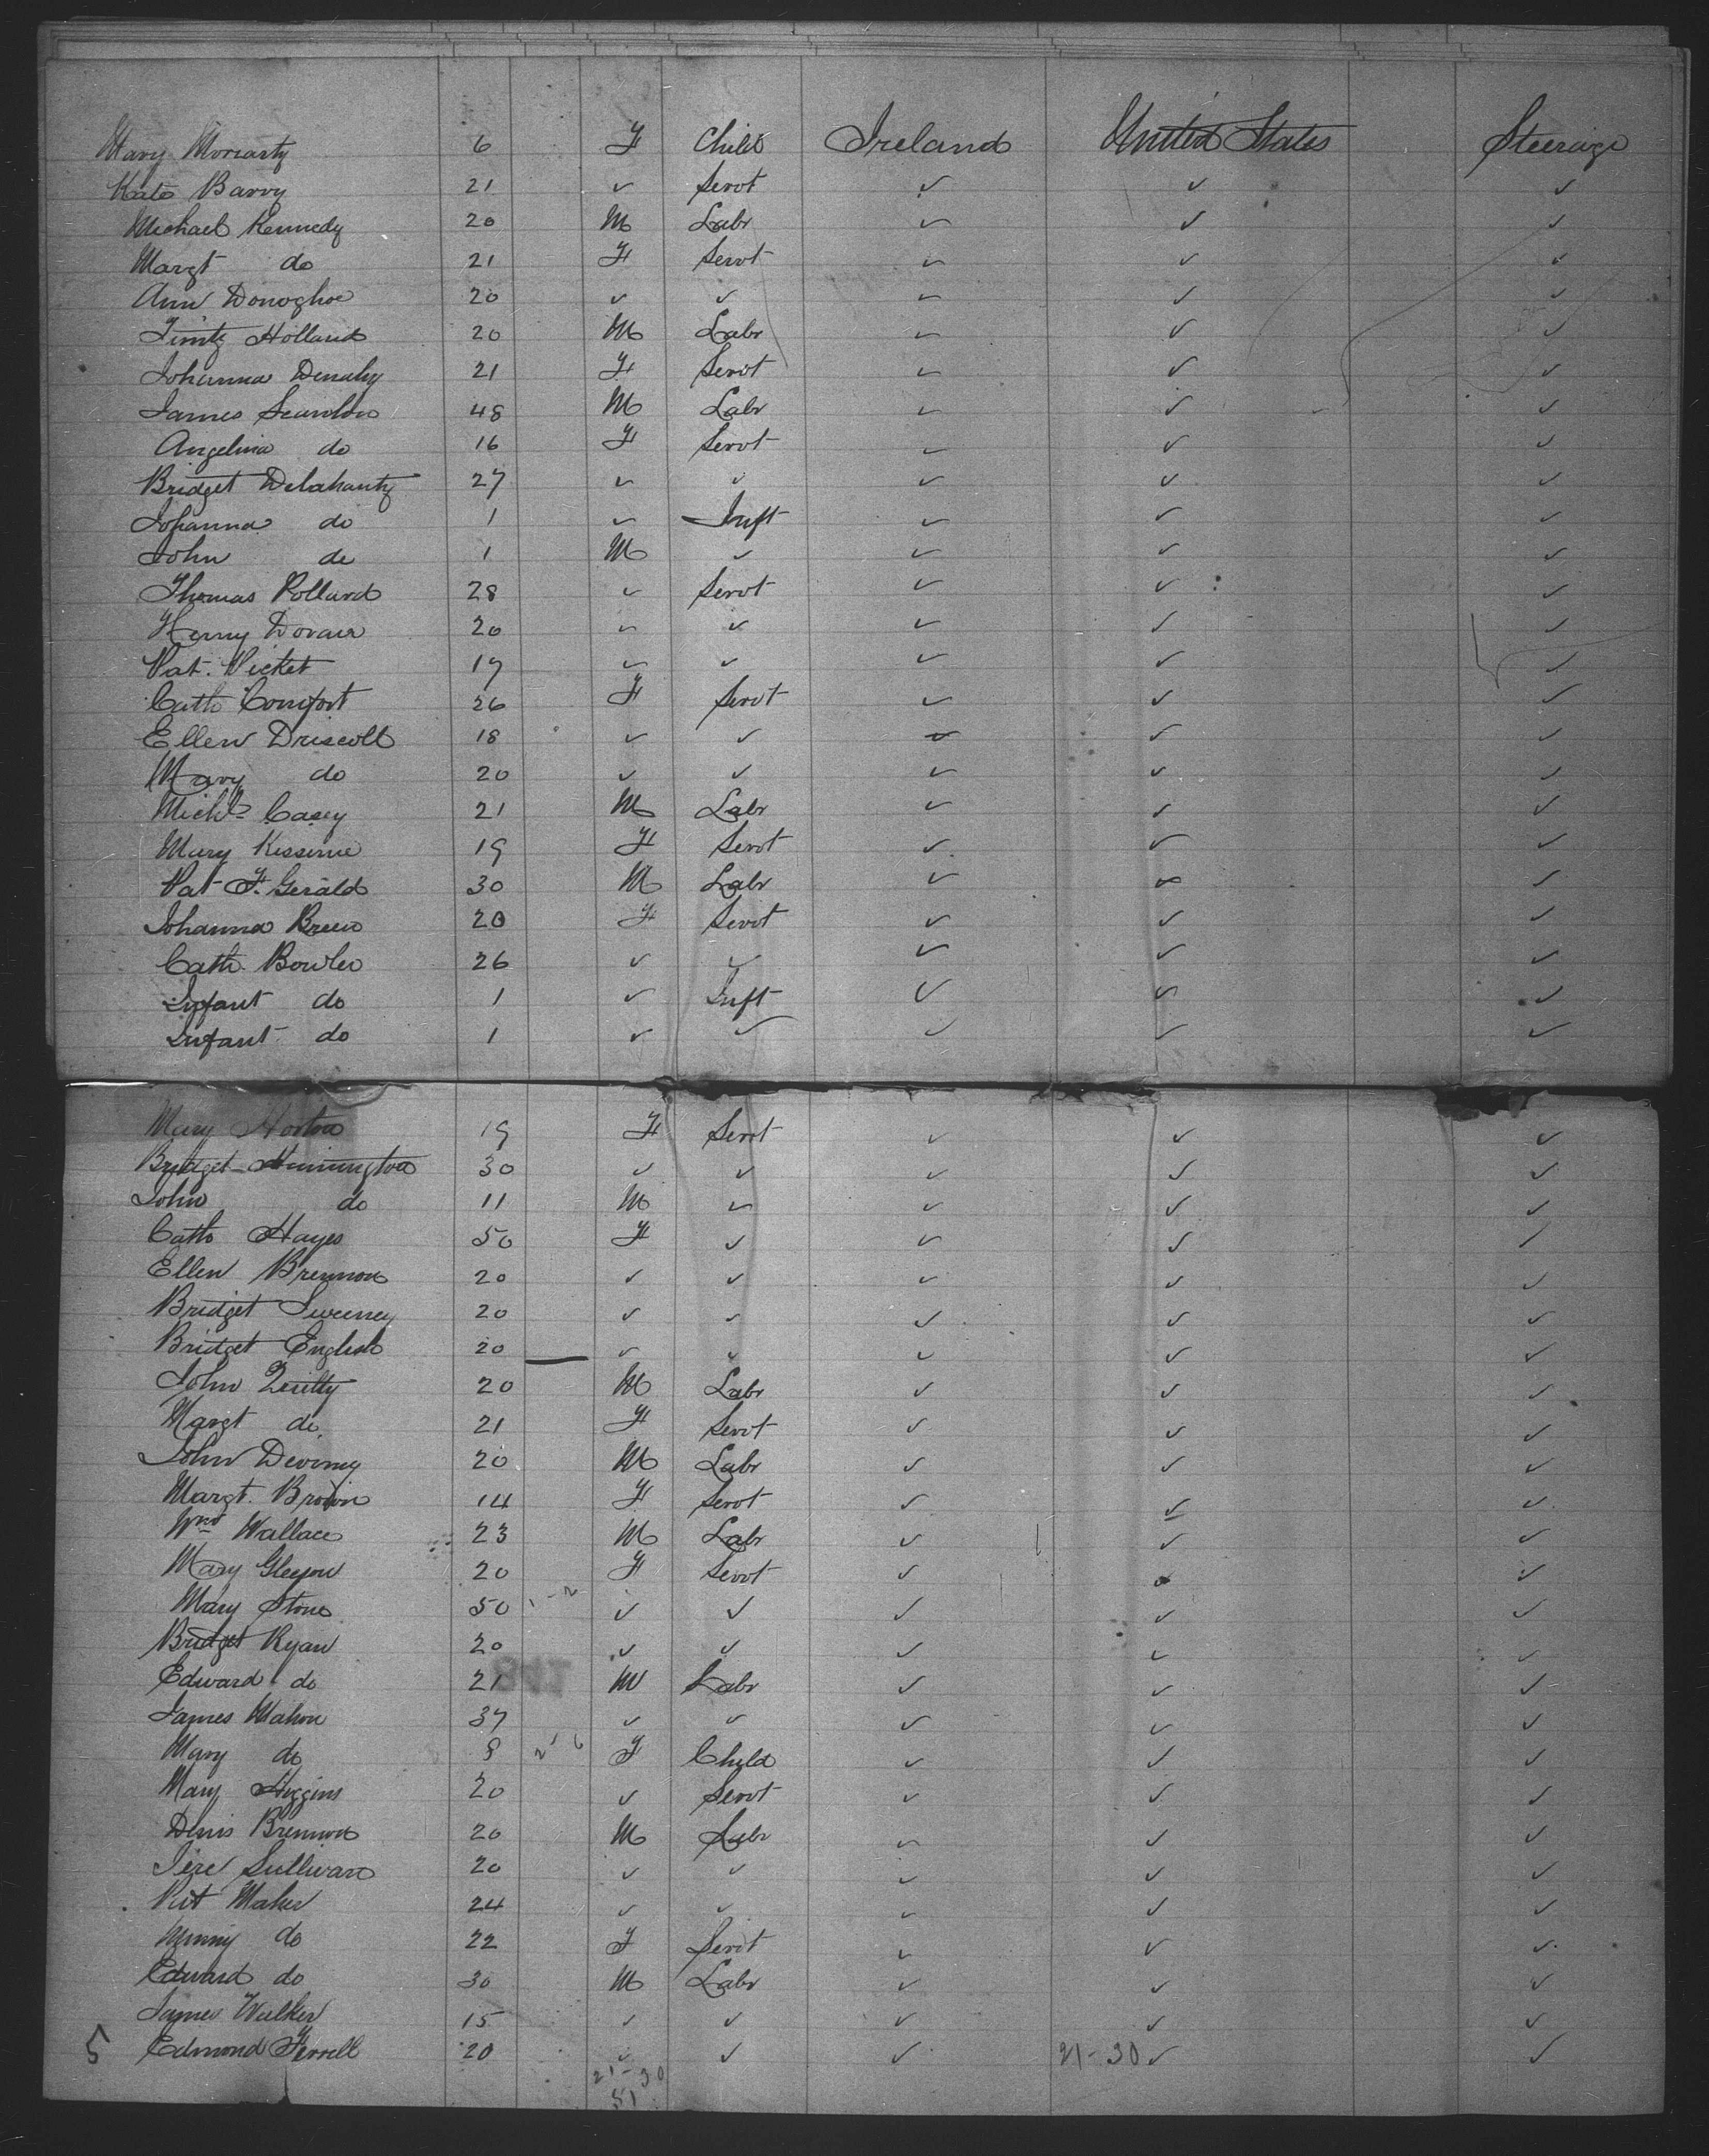 Mary Moriarty 6 F Child Ireland United States Steerage
Kate Barry 21 ✓ Servt ✓ ✓ ✓
Michael Kennedy 20 M Labr ✓ ✓ ✓
Margt do 21 F Servt ✓ ✓ ✓
Ann Donoghoe 20 ✓ ✓ ✓ ✓ ✓
Timty Holland 20 M Labr ✓ ✓ ✓
Johanna Denahy 21 F Servt ✓ ✓ ✓
James Scanlon 48 M Labr ✓ ✓ ✓
Angelina do 16 F Servt ✓ ✓ ✓
Bridget Delahanty 27 ✓ ✓ ✓ ✓ ✓
Johanna do 1 ✓ Inft ✓ ✓ ✓
John do 1 M ✓ ✓ ✓ ✓
Thomas Pollard 28 ✓ Servt ✓ ✓ ✓
Henry 20 ✓ ✓ ✓ ✓ ✓
Pat. Picket 19 ✓ ✓ ✓ ✓ ✓
Cath Comfort 26 F Servt ✓ ✓ ✓
Ellen Driscoll 18 ✓ ✓ ✓ ✓ ✓
Mary do 20 ✓ ✓ ✓ ✓ ✓
Michl Casey 21 M Labr ✓ ✓ ✓
Mary Kissane 19 F Servt ✓ ✓ ✓
Pat F. Gerald 30 M Labr ✓ ✓ ✓
Johanna Breen 20 F Servt ✓ ✓ ✓
Cath. Bowler 26 ✓ ✓ ✓ ✓ ✓
Infant do 1 ✓ Inft ✓ ✓ ✓
Infant do 1 ✓ ✓ ✓ ✓ ✓
Mary Horton 19 F Servt ✓ ✓ ✓
Bridget 30 ✓ ✓ ✓ ✓ ✓
John do 11 M ✓ ✓ ✓ ✓
Cath Hayes 50 F ✓ ✓ ✓ ✓
Ellen Brennon 20 ✓ ✓ ✓ ✓ ✓
Bridget Sweeney 20 ✓ ✓ ✓ ✓ ✓
Bridget English 20 ✓ ✓ ✓ ✓ ✓
John 20 M Labr ✓ ✓ ✓
Margt do 21 F Servt ✓ ✓ ✓
John Deviney 20 M Labr ✓ ✓ ✓
Margt. Brown 14 F Servt ✓ ✓ ✓
Wm Wallace 23 M Labr ✓ ✓ ✓
Mary Gleeson 20 F Servt ✓ ✓ ✓
Mary Stone 50 ✓ ✓ ✓ ✓ ✓
Bridget Ryan 20 ✓ ✓ ✓ ✓ ✓
Edward do 21 M Labr ✓ ✓ ✓
James Mahon 37 ✓ ✓ ✓ ✓ ✓
Mary do 8 F Child ✓ ✓ ✓
Mary Higgins 20 ✓ Servt ✓ ✓ ✓
Denis Brennon 20 M Labr ✓ ✓ ✓
Jere Sullivan 20 ✓ ✓ ✓ ✓ ✓
Pat Maher 24 ✓ ✓ ✓ ✓ ✓
Winny do 22 F Servt ✓ ✓ ✓
Edward do 30 M Labr ✓ ✓ ✓
James Walker 15 ✓ ✓ ✓ ✓ ✓
5 Edmond Ferrell 20 ✓ ✓ ✓ 21-30 ✓ ✓
21-30
51